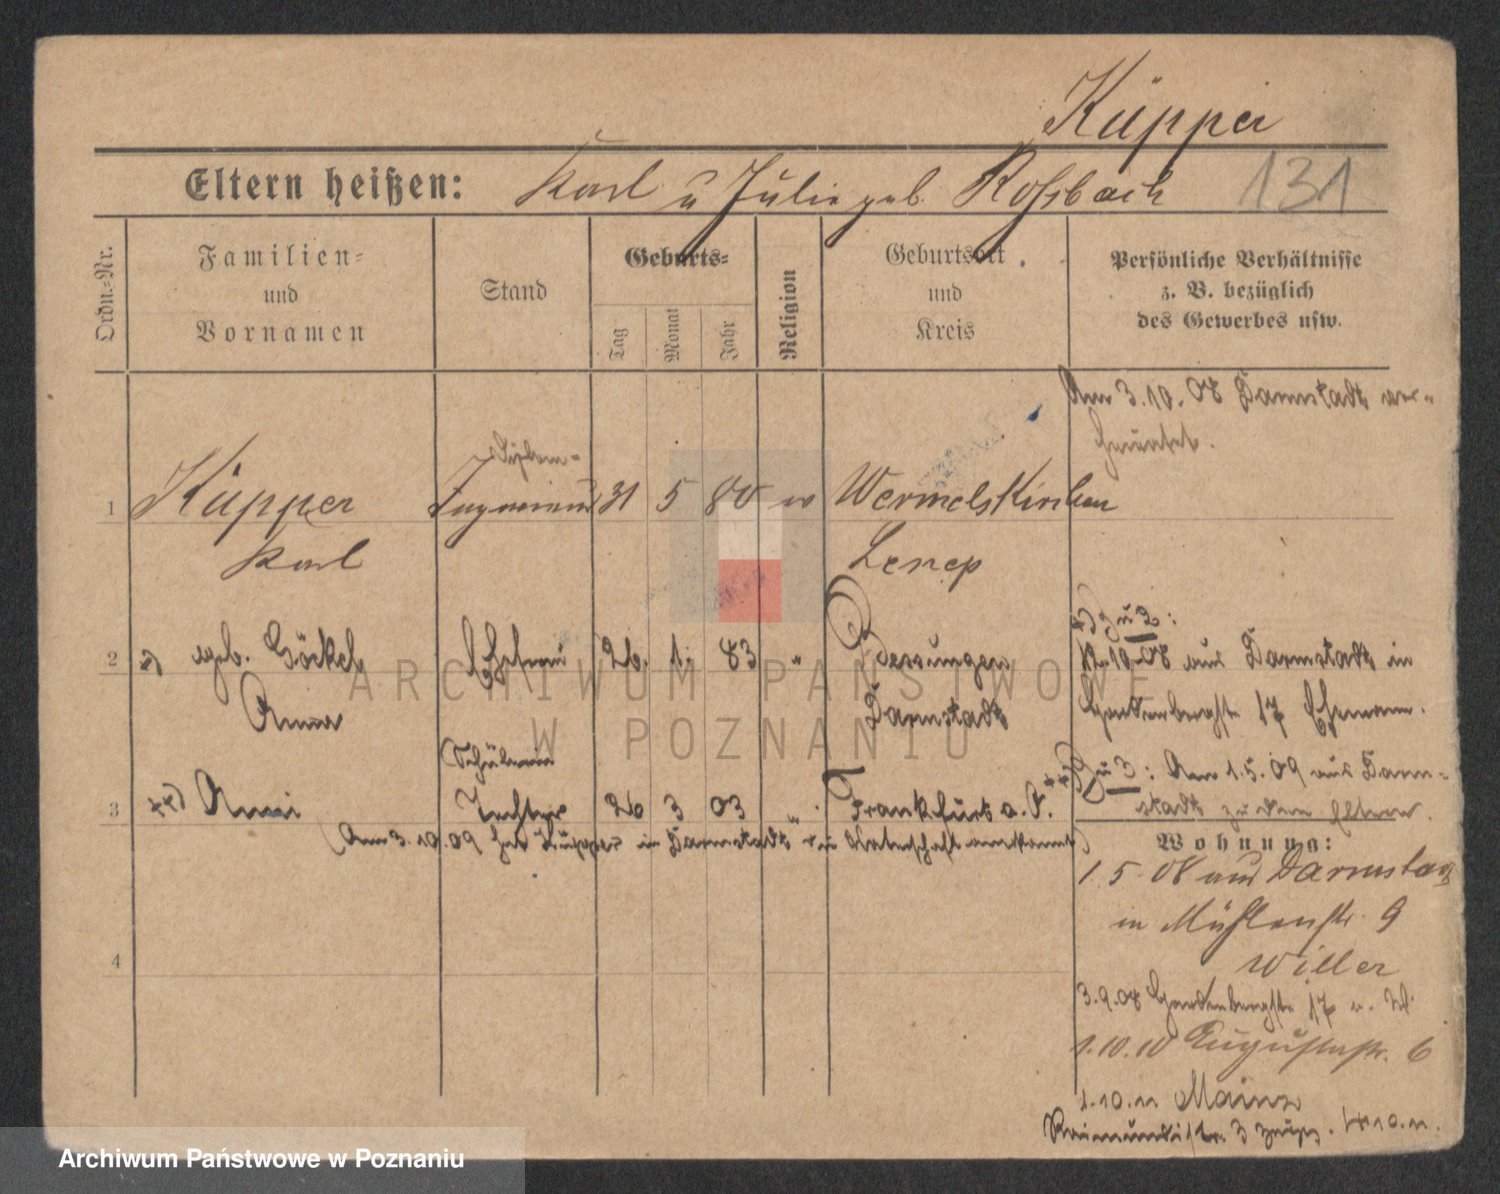 Küpper
Eltern heißen: Karl u Julie geb. Rossbach 131
Ordn.=Nr.
Familien=
und
Vornamen
Stand
Geburts=
Tag
Monat
Jahr
Religion
Geburtsort
und
Kreis
Persönliche Verhältnisse
z. B. bezüglich
des Gewerbes usw.
Am 3.10.08 Darmstadt ver=
heiratet.
Diplom=
1 Küpper Ingenieur 31 5 80 Wermelskirchen
Karl Lenep
+) Zu 2:
2 +) geb. Göckel Ehefrau 26. 1. 83 " Bessungen
12.10.08 aus Darmstadt in
Anna Darmstadt
17 Ehemann.
Schülerin
++) Zu 3: Am 1.5.09 aus Darm=
3 ++) Anni Tochter 26 3 03 " Frankfurt a. O.
stadt zu den Eltern.
(Am 3.10.09 hat Küpper in Darmstadt die Vaterschaft anerkannt)
Wohnung:
1.5.08 aus Darmstadt
in Mühlenstr. 9
Willer
4
3.9.08 17
1.10.10 Augustastr. 6
1.10.11 Mainz
3
ARCHIWUM PAŃSTWOWE
W POZNANIU
Archiwum Państwowe w Poznaniu